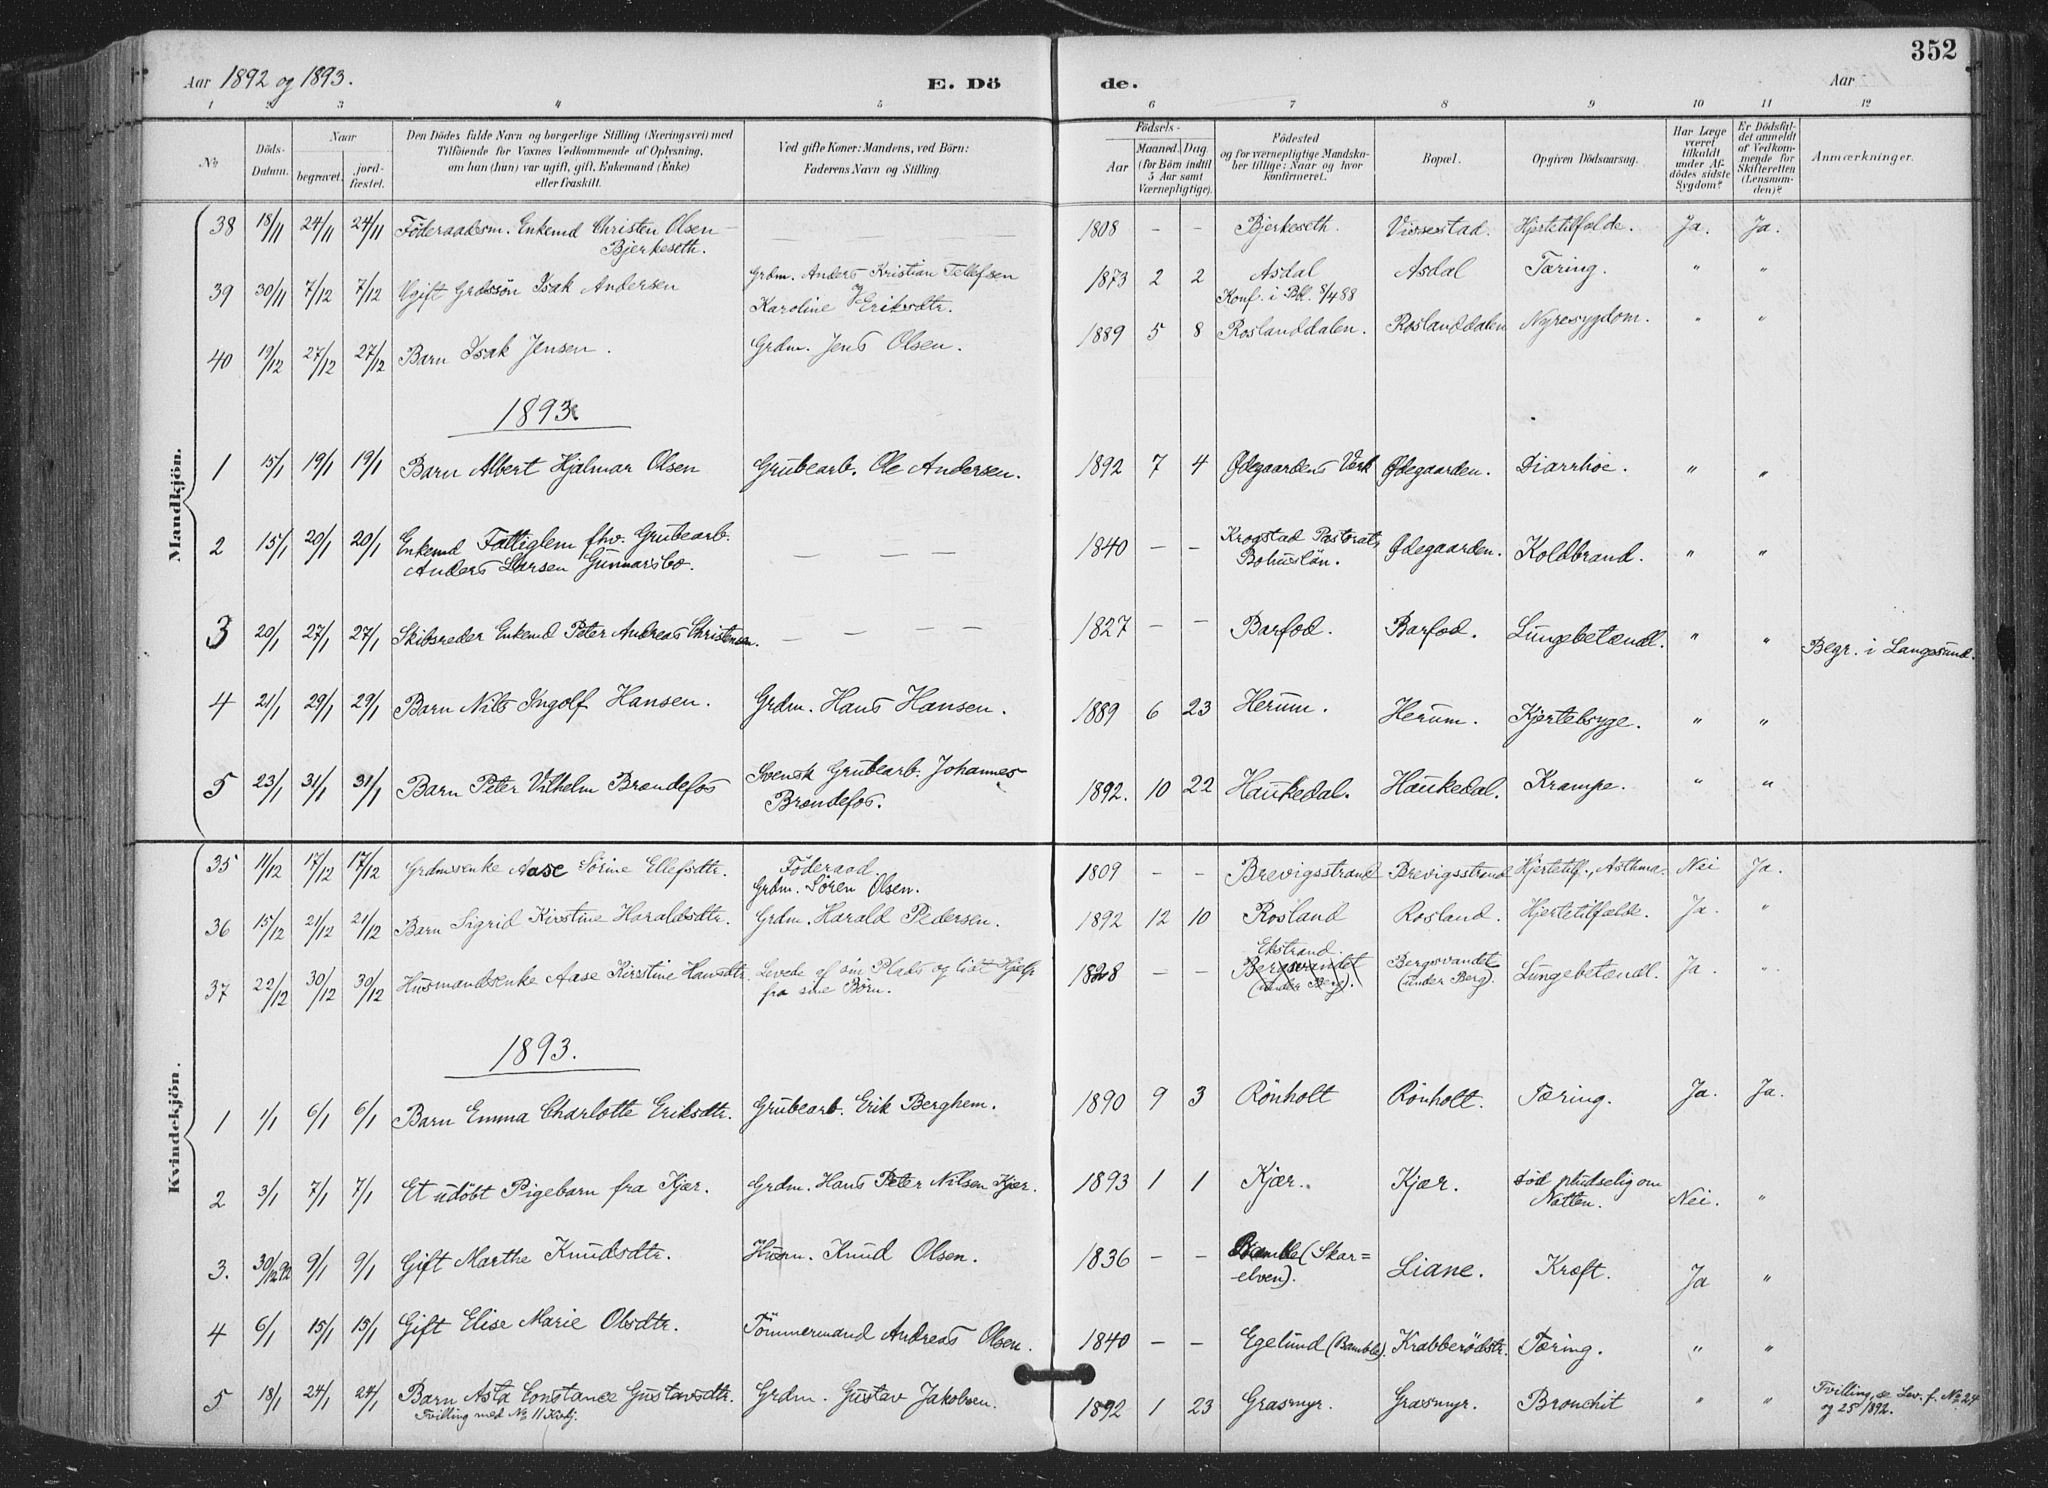 352
Aar 1892 og 1893. E. Dö de. Aar
1 2 3 4 5 6 7 8 9 10 11 12
No
Döds-Datum.
Naar
begravet.
jord-fæstet.
Den Dödes fulde Navn og borgerlige Stilling (Næringsvei) med
Tilföiende for Voxnes Vedkommende af Oplysning,
om han (hun) var ugift, gift, Enkemand (Enke)
eller fraskilt.
Ved gifte Koner: Mandens, ved Börn:
Faderens Navn og Stilling
Födsels-
Aar
Maaned. Dag
(for Börn indtil
5 Aar samt
Værnepligtige).
Födested
og for værnepligtige Mandska-
ber tillige: Naar og hvor
Konfirmeret.
Bopæl.
Opgiven Dödsaarsag.
Har Læge
været
tilkaldt
under Af-
dödes sidste
Sygdom?
Er Dödsfal-
det anmeldt
af Vedkom-
mende for
Skifteretten
(Lensman-
den)?
Anmærkninger.
Mandkjön.
38 18/11 24/11 24/11 Föderaadsm. Enkemd Christen Olsen — — — 1808 — — Bjerkeseth. Vissestad. Hjertetilfælde. Ja. Ja.
Bjerkeseth.
39 30/11 7/12 7/12 Ugift Grdssön Isak Andersen Grdm. Anders Kristian Tellefsen 1873 2 2 Asdal Asdal Tæring. " "
Karoline Eriksdtr. Konf. i Bbl. 8/4 88
40 19/12 27/12 27/12 Barn Isak Jensen. Grdm. Jens Olsen. 1889 5 8 Roslanddalen. Roslanddalen Nyresygdom. " "
1893
1 15/1 19/1 19/1 Barn Albert Hjalmar Olsen Grubearb. Ole Andersen. 1892 7 4 Ødegaardens Værk Ødegaarden. Diarrhöe. " "
2 15/1 20/1 20/1 Enkemd Fattiglem fhv. Grubearb. — — — 1840 — — Krogstad Pastorat, Ødegaarden. Koldbrand. " "
Anders Larsen Gunnarsbo. Bohuslän.
3 20/1 27/1 27/1 Skibsreder Enkemd Peter Andreas Christensen. — — — — 1827 — — Barfod. Barfod. Lungebetændl. " " Begr. i Langesund.
4 21/1 29/1 29/1 Barn Nils Ingolf Hansen. Grdm. Hans Hansen. 1889 6 23 Herum. Herum. Kjertelsyge. " "
5 23/1 31/1 31/1 Barn Peter Vilhelm Brændefos Svensk Grubearb. Johannes 1892. 10 22 Haukedal. Haukedal. Krampe. " "
Brændefos.
Kvindekjön.
35 11/12 17/12 17/12 Grdmsenke Aase Sörine Ellefsdtr. Föderaad. 1809 — — Brevigsstrand Brevigsstrand Hjertetilf., Asthma. Nei Ja.
Grdm. Sören Olsen.
36 15/12 21/12 21/12 Barn Sigrid Kirstine Haraldsdtr. Grdm. Harald Pedersen. 1892 12 10 Rosland Rosland. Hjertetilfælde. Ja. "
37 22/12 30/12 30/12 Husmandsenke Aase Kirstine Hansdtr. Levede af sin Plads og lidt Hjælp 1828 — — Ekstrand. Bergsvandet Lungebetændl. Ja. "
fra sine Börn. Bergsvandet (under Berg). (under Berg).
1893.
1 1/1 6/1 6/1 Barn Emma Charlotte Eriksdtr. Grubearb. Erik Berghem. 1890 9 3 Rönholt Rönholt. Tæring. Ja. Ja.
2 3/1 7/1 7/1 Et udöbt Pigebarn fra Kjær. Grdm. Hans Peter Nilsen Kjær. 1893 1 1 Kjær. Kjær. Död pludselig om Nei. "
Natten.
3. 30/12 92 9/1 9/1 Gift Marthe Knudsdtr. Husm. Knud Olsen. 1836 — — Bamble (Skar= Liane. Kræft. Ja "
-elven).
4 6/1 15/1 15/1 Gift Elise Marie Olsdtr. Tömmermand Andreas Olsen. 1840 — — Egelund (Bamble). Krabberödstr. Tæring. " "
5 18/1 24/1 24/1 Barn Asta Constance Gustavsdtr. Grdm. Gustav Jakobsen. 1892 1 23 Grasmyr. Grasmyr. Bronchit " " Tvilling, se Lev. f. No 24
Tvilling med No 11 Kvkj. og 25/1892.